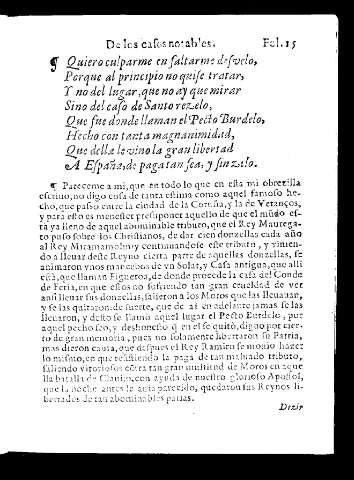 De los casos notables. Fol. 15
¶ Quiero culparme en faltarme desvelo,
Porque al principio no quise tratar,
Y no del lugar, que no ay que mirar
Sino del caso de Santo rezelo,
Que fue donde llaman el Pecto Burdelo,
Hecho con tanta magnanimidad,
Que della le vino la gran libertad
A España, de paga tan fea, y sin zelo.
¶ Pareceme a mi, que en todo lo que en esta mi obrezilla
escriuo, no digo cosa de tanta estima como aquel famoso he-
cho, que pasò entre la ciudad de la Coruña, y la de Vetanços,
y para esto es menester presuponer aquello de que el mũdo es-
tà ya lleno de aquel abominable tributo, que el Rey Maurega-
to puso sobre los Christianos, de dar cien donzellas cada año
al Rey Miramamolin y continuandose este tributo, y vinien-
do a lleuar deste Reyno cierta parte de aquellas donzellas, se
animaron vnos mancebos de vn Solar, y Casa antigua, que alli
està, que llaman Figueroa, de donde procede la casa del Conde
de Feria, en que estos no sufriendo tan gran crueldad de ver
ansi lleuar sus donzellas, salieron a los Moros que las lleuauan,
y se las quitaron de suerte, que de ai en adelante jamas se las
lleuaron, y desto se llamò aquel lugar el Pecto Burdelo, por
aquel pecho feo, y deshonesto q̃ en el se quitò, digno por cier-
to de gran memoria, pues no solamente honraron su Patria,
mas dieron causa, que despues el Rey Ramiro se mouio hazer
lo mismo, en que resistiendo la paga de tan maluado tributo,
saliendo vitoriosos cõtra tan gran multitud de Moros en aque
lla batalla de Clauijo, con ayuda de nuestro glorioso Apostol,
que la noche antes le auia parecido, quedaron sus Reynos li-
bertados de tan abominables parias.
Dezir